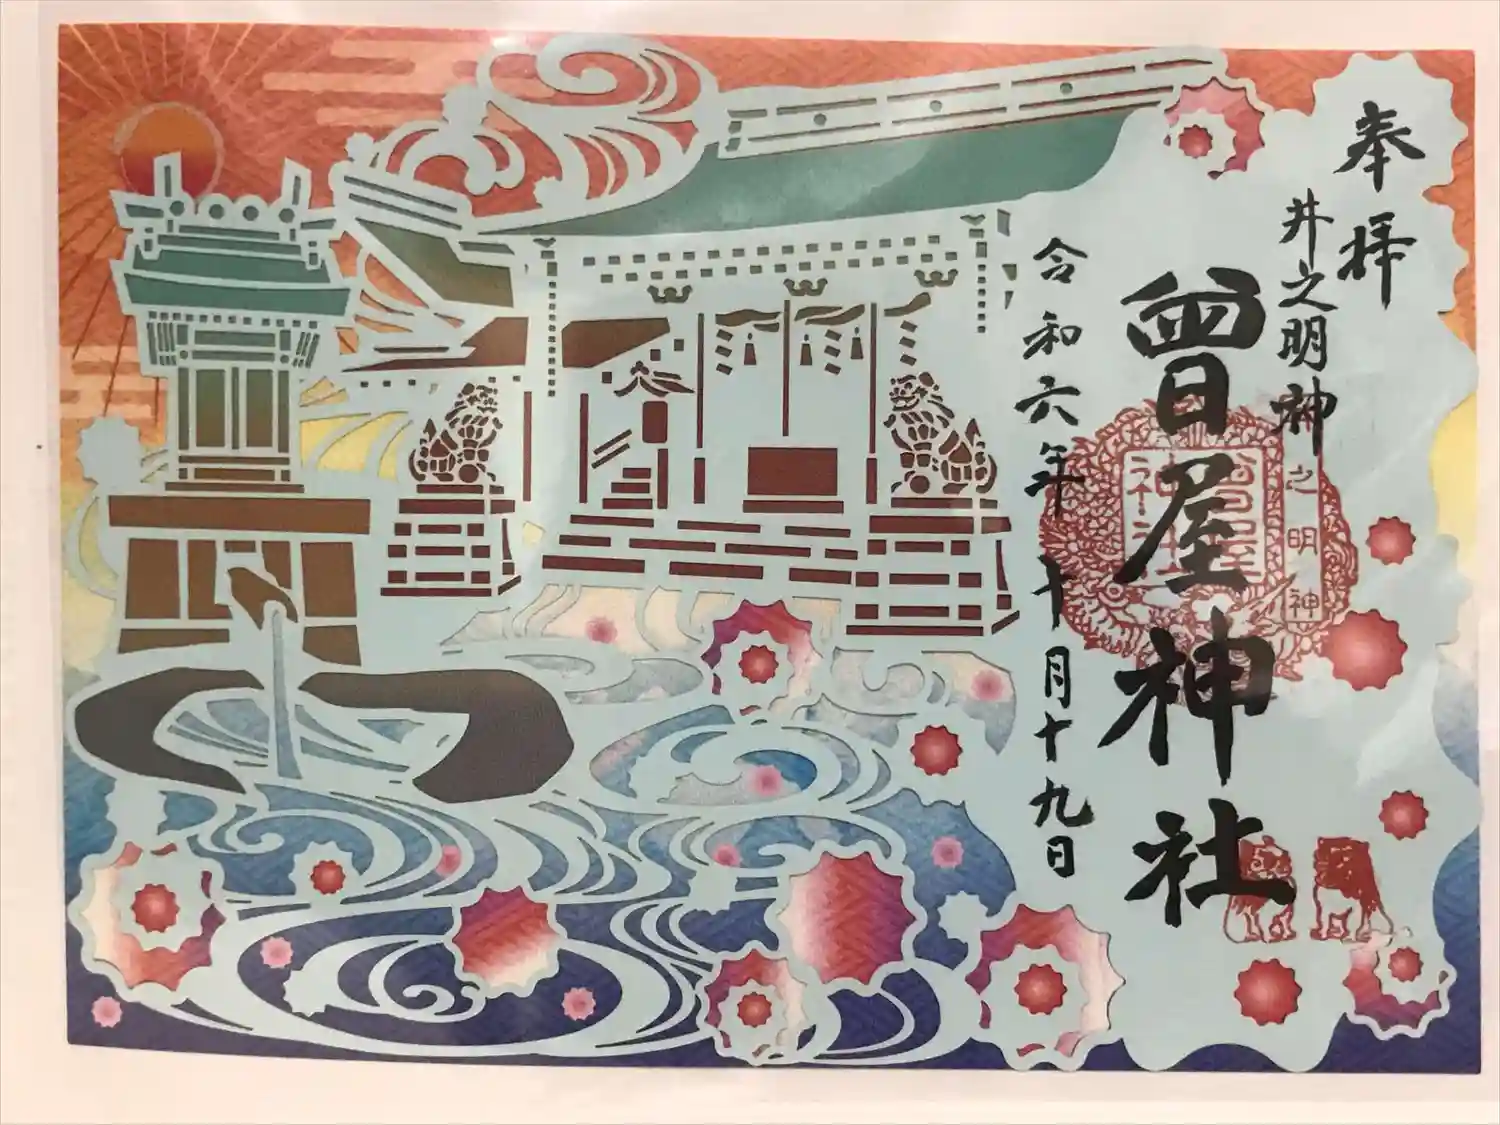 奉拝
井之明神
曾屋神社
令和六年十月十九日
井之明神
曾屋神社